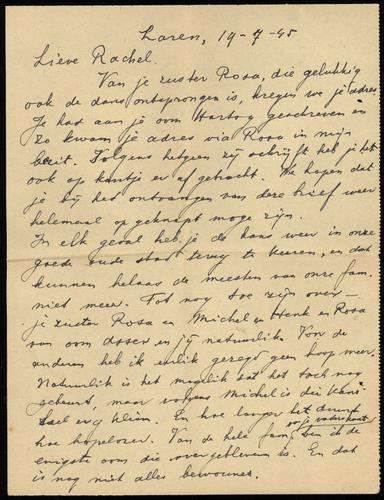 Laren, 19-7-45
Lieve Rachel.
Van je zuster Rosa, die gelukkig
ook de dans ontsprongen is, kregen we je adres
Je had aan je oom Hartog geschreven en
zo kwam je adres via Rosa in mijn
bezit. Volgens hetgeen zij schrijft heb je 't
ook op kantje er af gebracht. We hopen dat
je bij het ontvangen van deze brief weer
helemaal opgeknapt moge zijn.
In elk geval heb je de kans weer in onze
goede oude stad terug te keren, en dat
kunnen helaas de meesten van onze fam.
niet meer. Tot nog toe zijn over –
je zuster Rosa en Michel en Henk en Rosa
van oom en jij natuurlijk. Voor de
anderen heb ik eerlijk gezegd geen hoop meer.
Natuurlijk is het mogelijk dat het toch nog
gebeurt, maar volgens Michel is die kans
heel erg klein. En hoe langer het duurt
hoe hopelozer. Van de hele fam. ben ik de
enigste oom die overgebleven is. En dat
is nog niet alles bewounes.